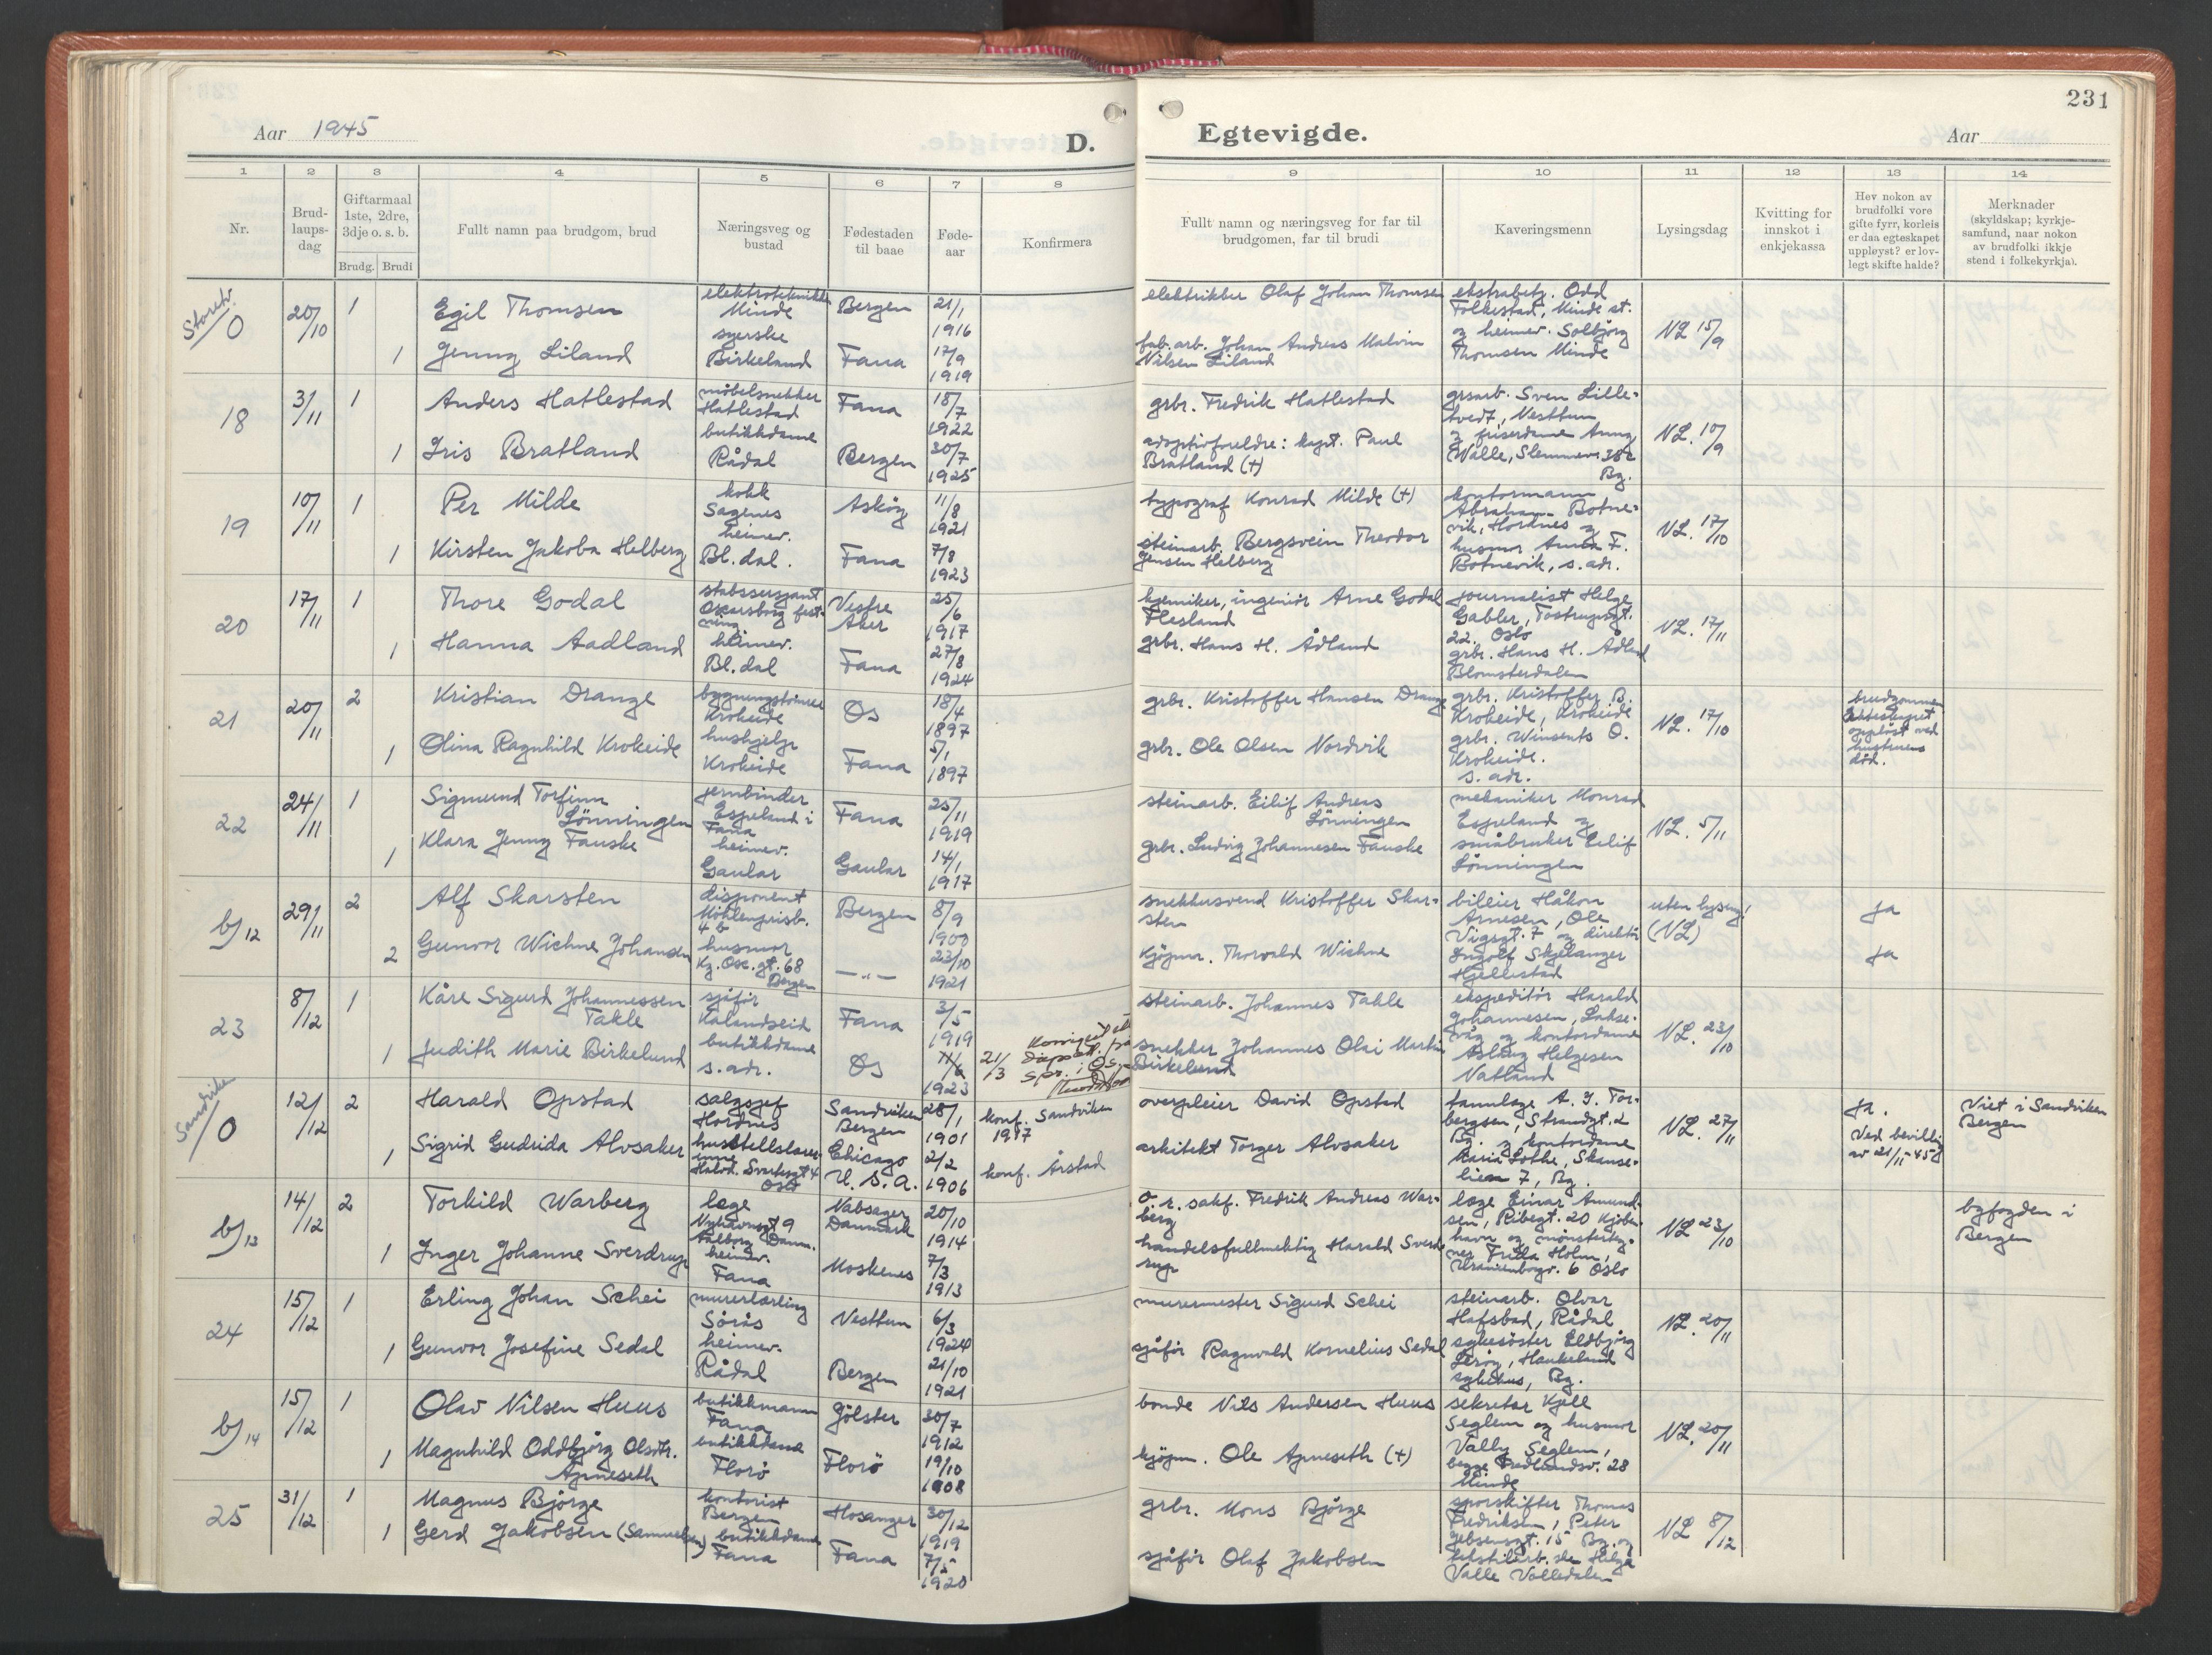 231
Aar 1945
D. Egtevigde.
Aar
1 2 3 4 5 6 7 8 9 10 11 12 13 14
Nr.
Brud-
laups-
dag
Giftarmaal
1ste, 2dre,
3dje o. s. b.
Brudg. Brudi
Fullt namn paa brudgom, brud
Næringsveg og
bustad
Fødestaden
til baae
Føde-
aar
Konfirmera
Fullt namn og næringsveg for far til
brudgomen, far til brudi
Kaveringsmenn
Lysingsdag
Kvitting for
innskot i
enkjekassa
Hev nokon av
brudfolki vore
gifte fyrr, korleis
er daa egteskapet
uppleyst? er lov-
legt skifte halde?
Merknader
(skyldskap; kyrkje-
samfund, naar nokon
av brudfolki ikkje
stend i folkekyrkja).
Storetv.
0
20/10
1
Egil Thomsen
elektrotekniker
Minde
Bergen
21/1
1916
1
Jenny Liland
syerske
Birkeland
Fana
17/9
1919
elektriker Olaf Johan Thomsen
fab.arb. Johan Andreas Malvin
Nilsen Liland
ekstrabetj. Odd
Folkestad, Minde st.
og heimev. Solbjörg
Thomsen Minde
NL 15/9
18
3/11
1
Anders Hatlestad
möbelsnekker
Hatlestad
Fana
18/7
1922
1
Iris Bratland
butikkdame
Rådal
Bergen
30/7
1925
grbr. Fredrik Hatlestad
adoptivforeldre: kapt. Paul
Bratland (+)
grsarb. Sven Lille-
tvedt, Nesttun
og friserdame Anny
Walle, Slemmev. 38c
Bg.
NL. 10/9
19
10/11
1
Per Milde
kokk
Sagenes
Asköy
11/8
1921
1
Kirsten Jakoba Helberg
heimev.
Bl.dal.
Fana
7/8
1923
typograf Konrad Milde (+)
steinarb. Bergsvein Theodor
Jensen Helberg
kontormann
Abraham Botne-
vik, Hordnes og
husmor Anna F.
Botnevik, s.adr.
NL. 17/10
20
17/11
1
Thore Godal
stabssersjant
Oscarsborg fest-
ning
Vestre
Aker
25/6
1917
1
Hanna Aadland
heimev.
Bl.dal
Fana
27/8
1924
kjemiker, ingeniör Arne Godal
Flesland
grbr. Hans H. Ådland
journalist Helge
Gabler, Tostrupsgt.
22. Oslo
grbr. Hans H. Ådland
Blomsterdalen
NL. 17/11
21
20/11
2
Kristian Drange
Krokeide
Os
18/4
1897
1
Olina Ragnhild Krokeide
hushjelp
Krokeide
Fana
5/1
1897
grbr. Kristoffer Hansen Drange
grbr. Ole Olsen Nordvik
grbr. Kristoffer B.
Krokeide, Krokeide
grbr. Winsents O.
Krokeide.
s. adr.
NL. 17/10
brudgommen
ekteskapet
opplöst ved
hustruens
död.
22
24/11
1
Sigmund Torfinn
Lönningen
jernbinder
Espeland i
Fana
Fana
25/11
1919
1
Klara Jenny Fauske
heimev.
Gaular
Gaular
14/1
1917
steinarb. Eilif Andreas
Lönningen
grbr. Ludvig Johannesen Fauske
mekaniker Monrad
Espeland og
småbruker Eilif
Lönningen
NL. 5/11
b/12
29/11
2
Alf Skarsten
disponent
Möhlenprisb.
4 b
Bergen
8/9
1900
2
Gunvor Wichne Johansen
husmor
Kg. Osc. gt. 68
Bergen
— " —
23/10
1921
snekkersvend Kristoffer Skar-
sten
Kjöpm. Thorvald Wichne
bileier Håkon
Arnesen, Ole
Vigsgt. 7 og direktör
Ingolf Skjelanger
Hjellestad
uten lysing!
(NL)
Ja
Ja
23
8/12
1
Kåre Sigurd Johannessen
Takle
sjåför
Kalandseid
Fana
3/5
1919
1
Judith Marie Birkelund
butikkdame
s. adr.
Os
1923
21/3
steinarb. Johannes Takle
snekker Johannes Olai Martin
Birkelund
ekspeditör Harald
Johannesen, Lakse-
våg og kontordame
Aslaug Helgesen
Natland
NL. 23/10
Sandviken
0
12/12
2
Harald Opstad
salgssjef
Hordnes
Sandviken
Bergen
28/1
1901
konf. Sandviken
1917
1
Sigrid Gudrida Alvsaker
husstellslærer-
inne
Halvd. Svartesgt 4
Oslo
Chicago
U. S. A.
2/2
1906
konf. Årstad
overpleier David Opstad
arkitekt Torger Alvsaker
tannlege A. J. Tor-
bergsen, Strandgt. 2
Bg. og kontordame
Maria Lothe, Skanse-
lien 7, Bg.
NL. 27/11
Ja.
Ved bevilling
av 21/11-45
Viet i Sandviken
Bergen
b/13
14/12
2
Torkild Warberg
læge
Nyhavnsgt 9
Aalborg Danm.
Nabsager
Danmark
20/10
1914
1
Inger Johanne Sverdrup
heimev.
Fana
Moskenes
7/3
1913
o. r. sakf. Fredrik Andreas War-
berg
handelsfullmektig Harald Sverd-
rup
læge Einar Amund-
sen, Ribegt. 20 Kjöben-
havn og mönsterteg-
ner Frida Holm,
Uranienborgv. 6 Oslo
NL 23/10
byfogden i
Bergen
24
15/12
1
Erling Johan Schei
murerlærling
Sörås
Nesttun
6/3
1924
1
Gunvor Josefine Sedal
heimev.
Rådal
Bergen
21/10
1921
murermester Sigurd Schei
sjåför Ragnvald Kornelius Sedal
steinarb. Olvar
Hafsbad, Rådal
sykesöster Eldbjörg
Leröy, Haukeland
sykehus, Bg.
NL. 20/11
b/14
15/12
1
Olav Nilsen Huus
butikkmann
Fana
Jölster
30/7
1912
1
Magnhild Oddbjörg Olsdtr.
Apneseth
butikkdame
Florö
Florö
19/10
1908
bonde Nils Andersen Huus
kjöpm. Ole Apneseth (+)
sekretær Kjell
Seglem og husmor
Vally Seglem,
begge Fredlundsv. 28
Minde
NL. 20/11
25
31/12
1
Magnus Björge
kontorist
Bergen
Hosanger
30/12
1919
1
Gerd Jakobsen (Samuelsen)
butikkdame
Fana
Fana
7/5
1920
grbr. Mons Björge
sjåför Olaf Jakobsen
sporskifter Thomas
Fredriksen, Peter
Jebsensgt. 15 Bg. og
tekstilarb.ske Helga
Valle Valledalen
NL 8/12